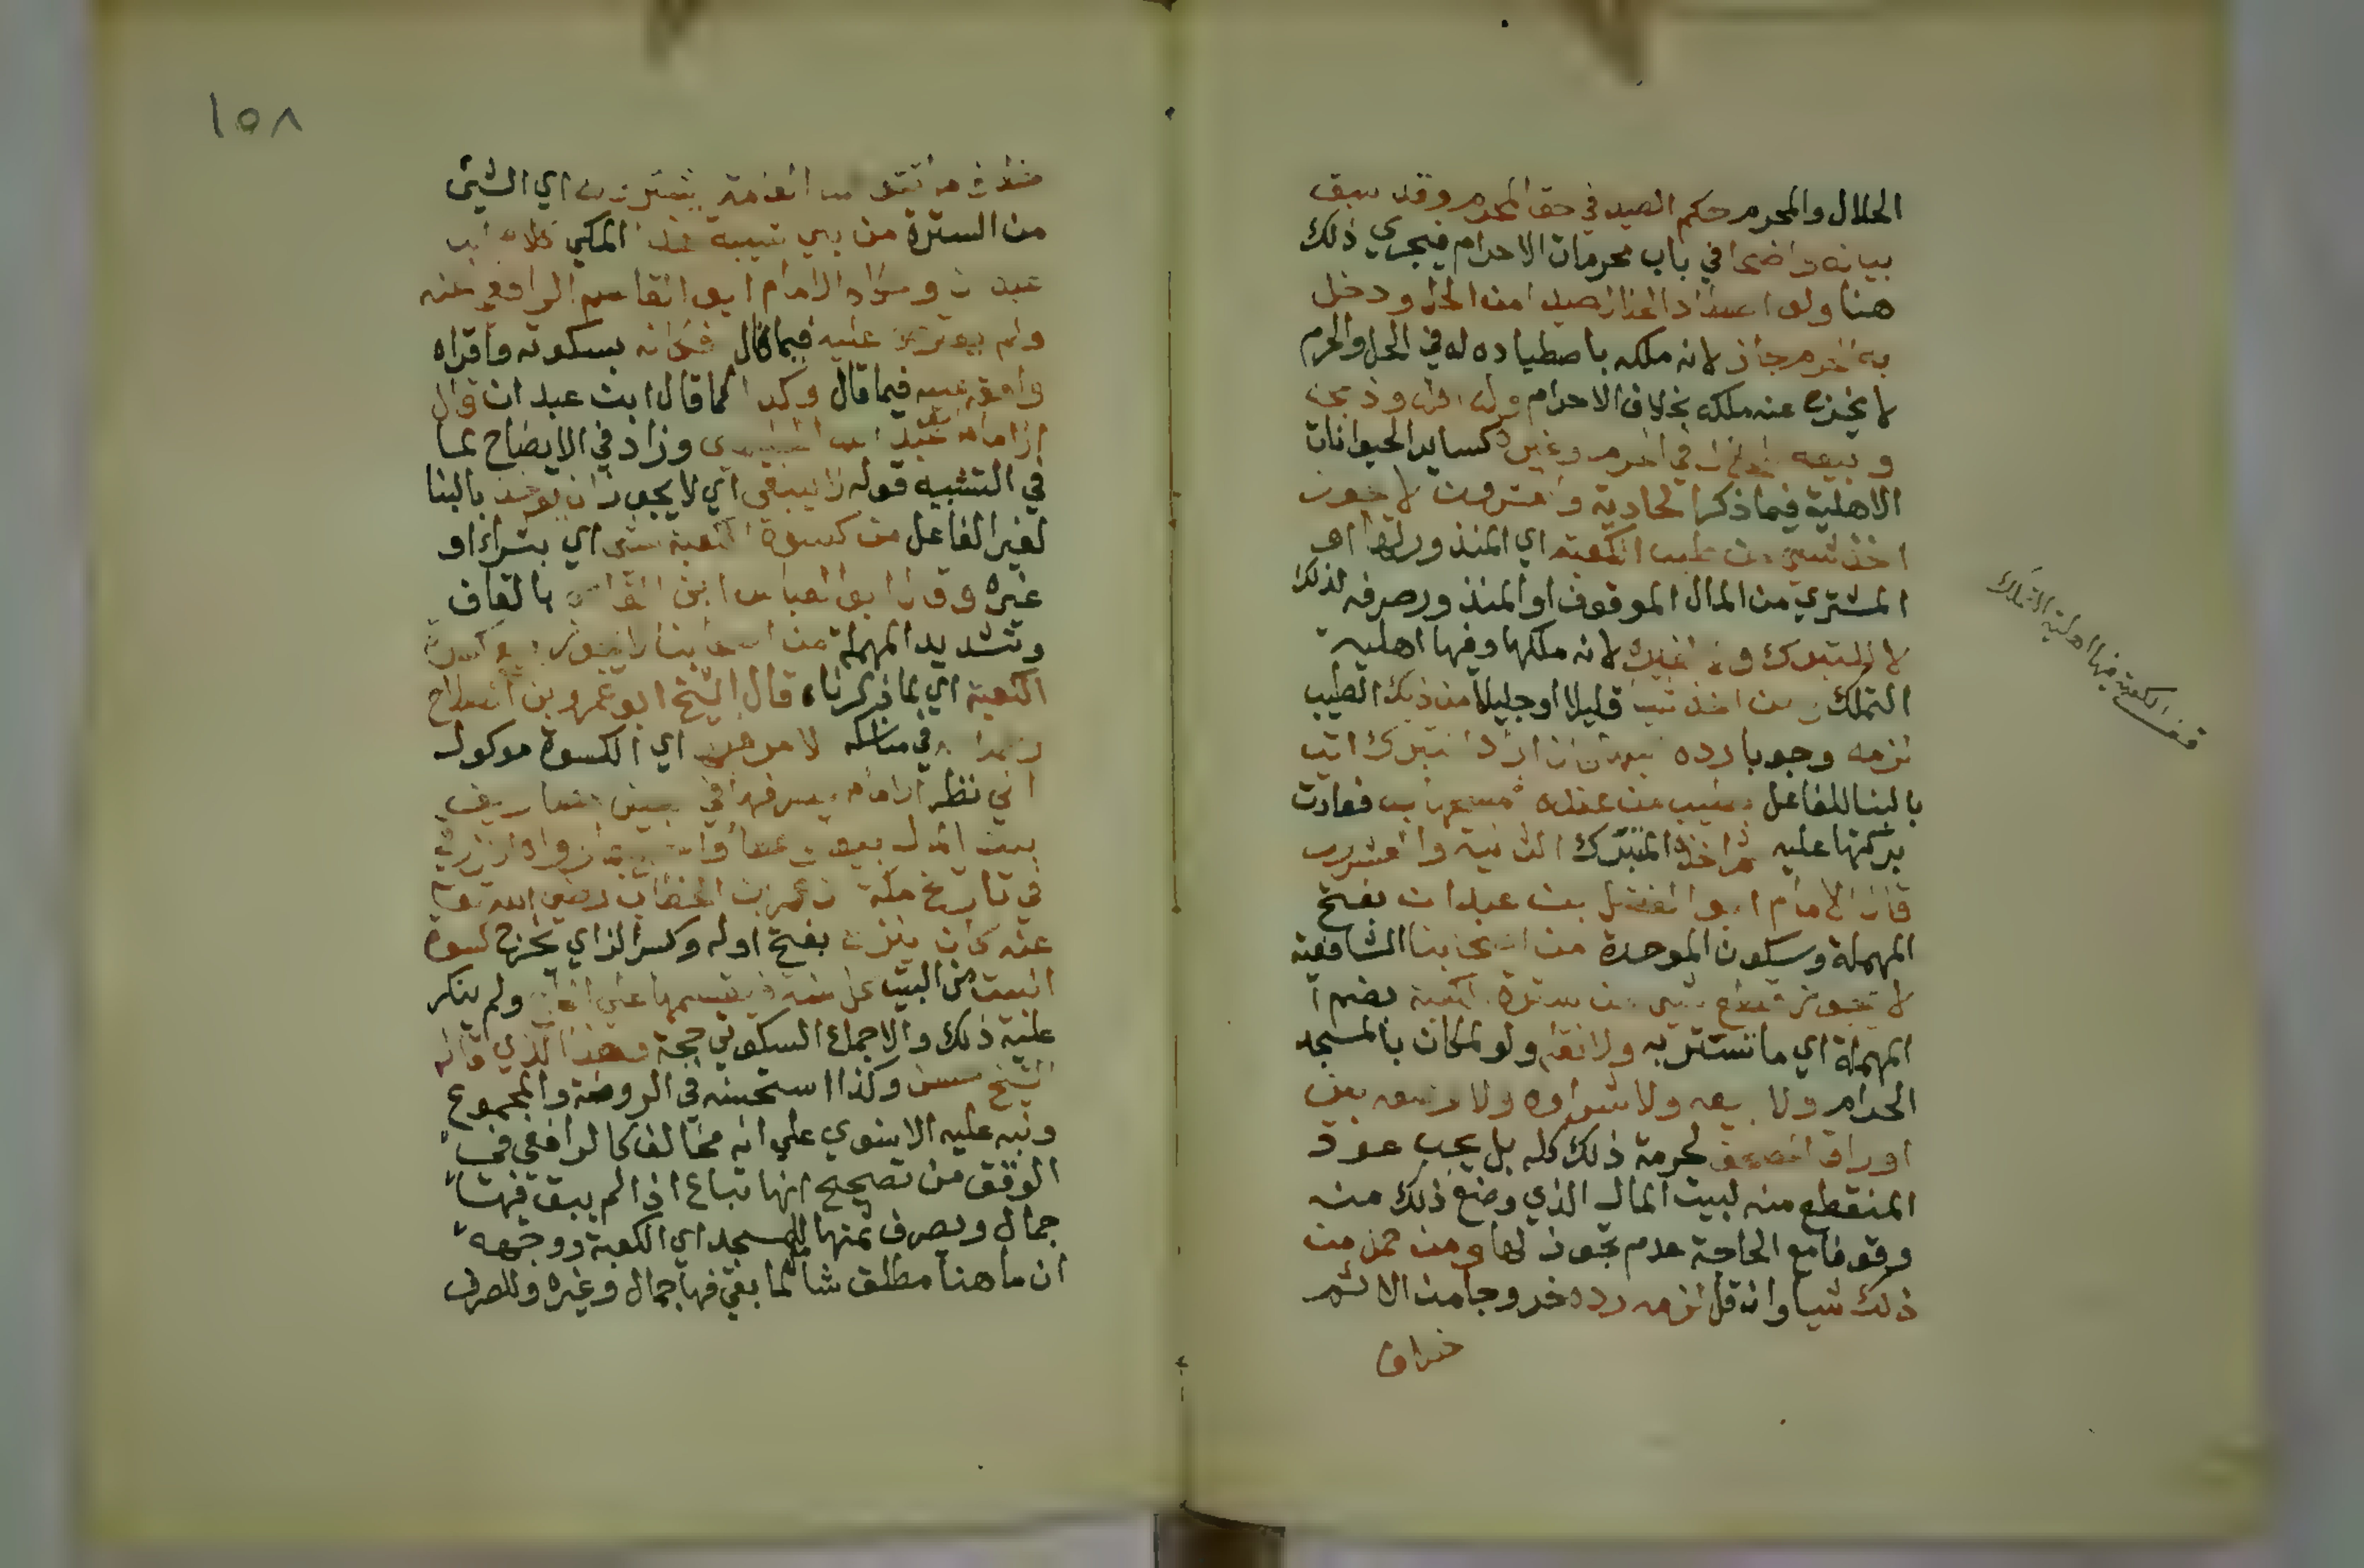 الحلال والمحرم حكم الصيد في حق المحرم وقد سبق
بيانه واضحا في باب محرمات الاحرام فيجري ذلك
هنا ولو اصطاد الحلال صيدا من الحل ودخل
به الحرم جاز لانه ملكه باصطياده له في الحل والحرم
لا يخرج عنه ملكه بخلاف الاحرام وذبحه
وبيعه في الحرم وغيره كساير الحيوانات
الاهلية فيما ذكر الحادية والعشرون لا يجوز
اخذ شي من طيب الكعبة اي المنذور لها او
المشتري من المال الموقوف او المنذور صرفه لذلك
لا للتبرك ولا لغيره لانه ملكها وفيها اهلية
التملك ومن اخذ شيا قليلا او جليلا من ذلك الطيب
لزمه وجوبا رده فان اراد التبرك اتي
بالبنا للفاعل بطيب من عنده فمسحها به فعادت
بركتها عليه ثم اخذ المتبرك الثانية والعشرون
قال الامام ابو الفضل بن عبدان بفتح
المهملة وسكون الموحدة من اصحابنا الشافعية
لا يجوز قطع شي من سترة الكعبة بضم
المهملة اي ما تستتر به ولا نقله ولو لمكان بالمسجد
الحرام ولا بيعه ولا شراوه ولا وضعه بين
اوراق المصحف لحرمة ذلك كله بل يجب عود
المنقطع منه لبيت المال الذي وضع ذلك منه
وقوفا مع الحاجة عدم تجوز لها ومن حمل من
ذلك شيا وان قل لزمه رده خروجا من الاثم
خلاف
قف الكعبة فيها اهلية التملك
١٥٨
خلاف ما تتوهمه العامة يشترون اي الشي
من السترة من بني شيبة هذا المكي كلام ابن
عبدان وحكاه الامام ابو القاسم الرافعي عنه
ولم يعترض عليه فيما قال فكانه بسكوته واقراه
وافقه عليه فيما قال وكذا كما قال ابن عبدان قال
الامام ابو عبد الله الحليمي وزاد في الايضاح عما
في التشبيه قوله لا ينبغي اي لا يجوز ان يوخذ بالبنا
لغير الفاعل من كسوة الكعبة شي اي بشراء او
غيره وقال ابو العباس ابن القاص بالقاف
وتشديد المهملة من اصحابنا لا يجوز بيع كسوة
الكعبة اي بما ذكرناه قال الشيخ ابو عمرو بن الصلاح
في مناسكه الامر فيها اي الكسوة موكول
الي نظر الامام يصرفها في بعض مصاريف
بيت المال بيعا وعطا واحتج بما رواه الازرقي
في تاريخ مكة ان عمر بن الخطاب رضي الله تعالى
عنه كان ينزع بفتح اوله وكسر الزاي كسوة
البيت من البيت كل سنة فيقسمها علي الحاج ولم ينكر
عليه ذلك والاجماع السكوتي حجة وهذا الذي قاله
الشيخ حسن وكذا استحسنه في الروضة والمجموع
ونبه عليه الاسنوي علي انه مخالف كالرافعي في
الوقف من تصحيح انها تباع اذا لم يبق فيها
جمال ويصرف ثمنها للمسجد اي الكعبة ووجهه
ان ما هنا مطلق شامل لما بقي فيها جمال وغيره وللصرف